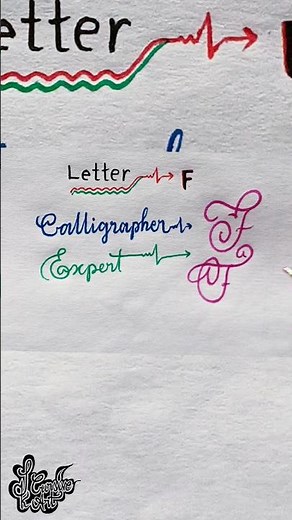 etter
Letter F
Calligrapher F
Expert F
a